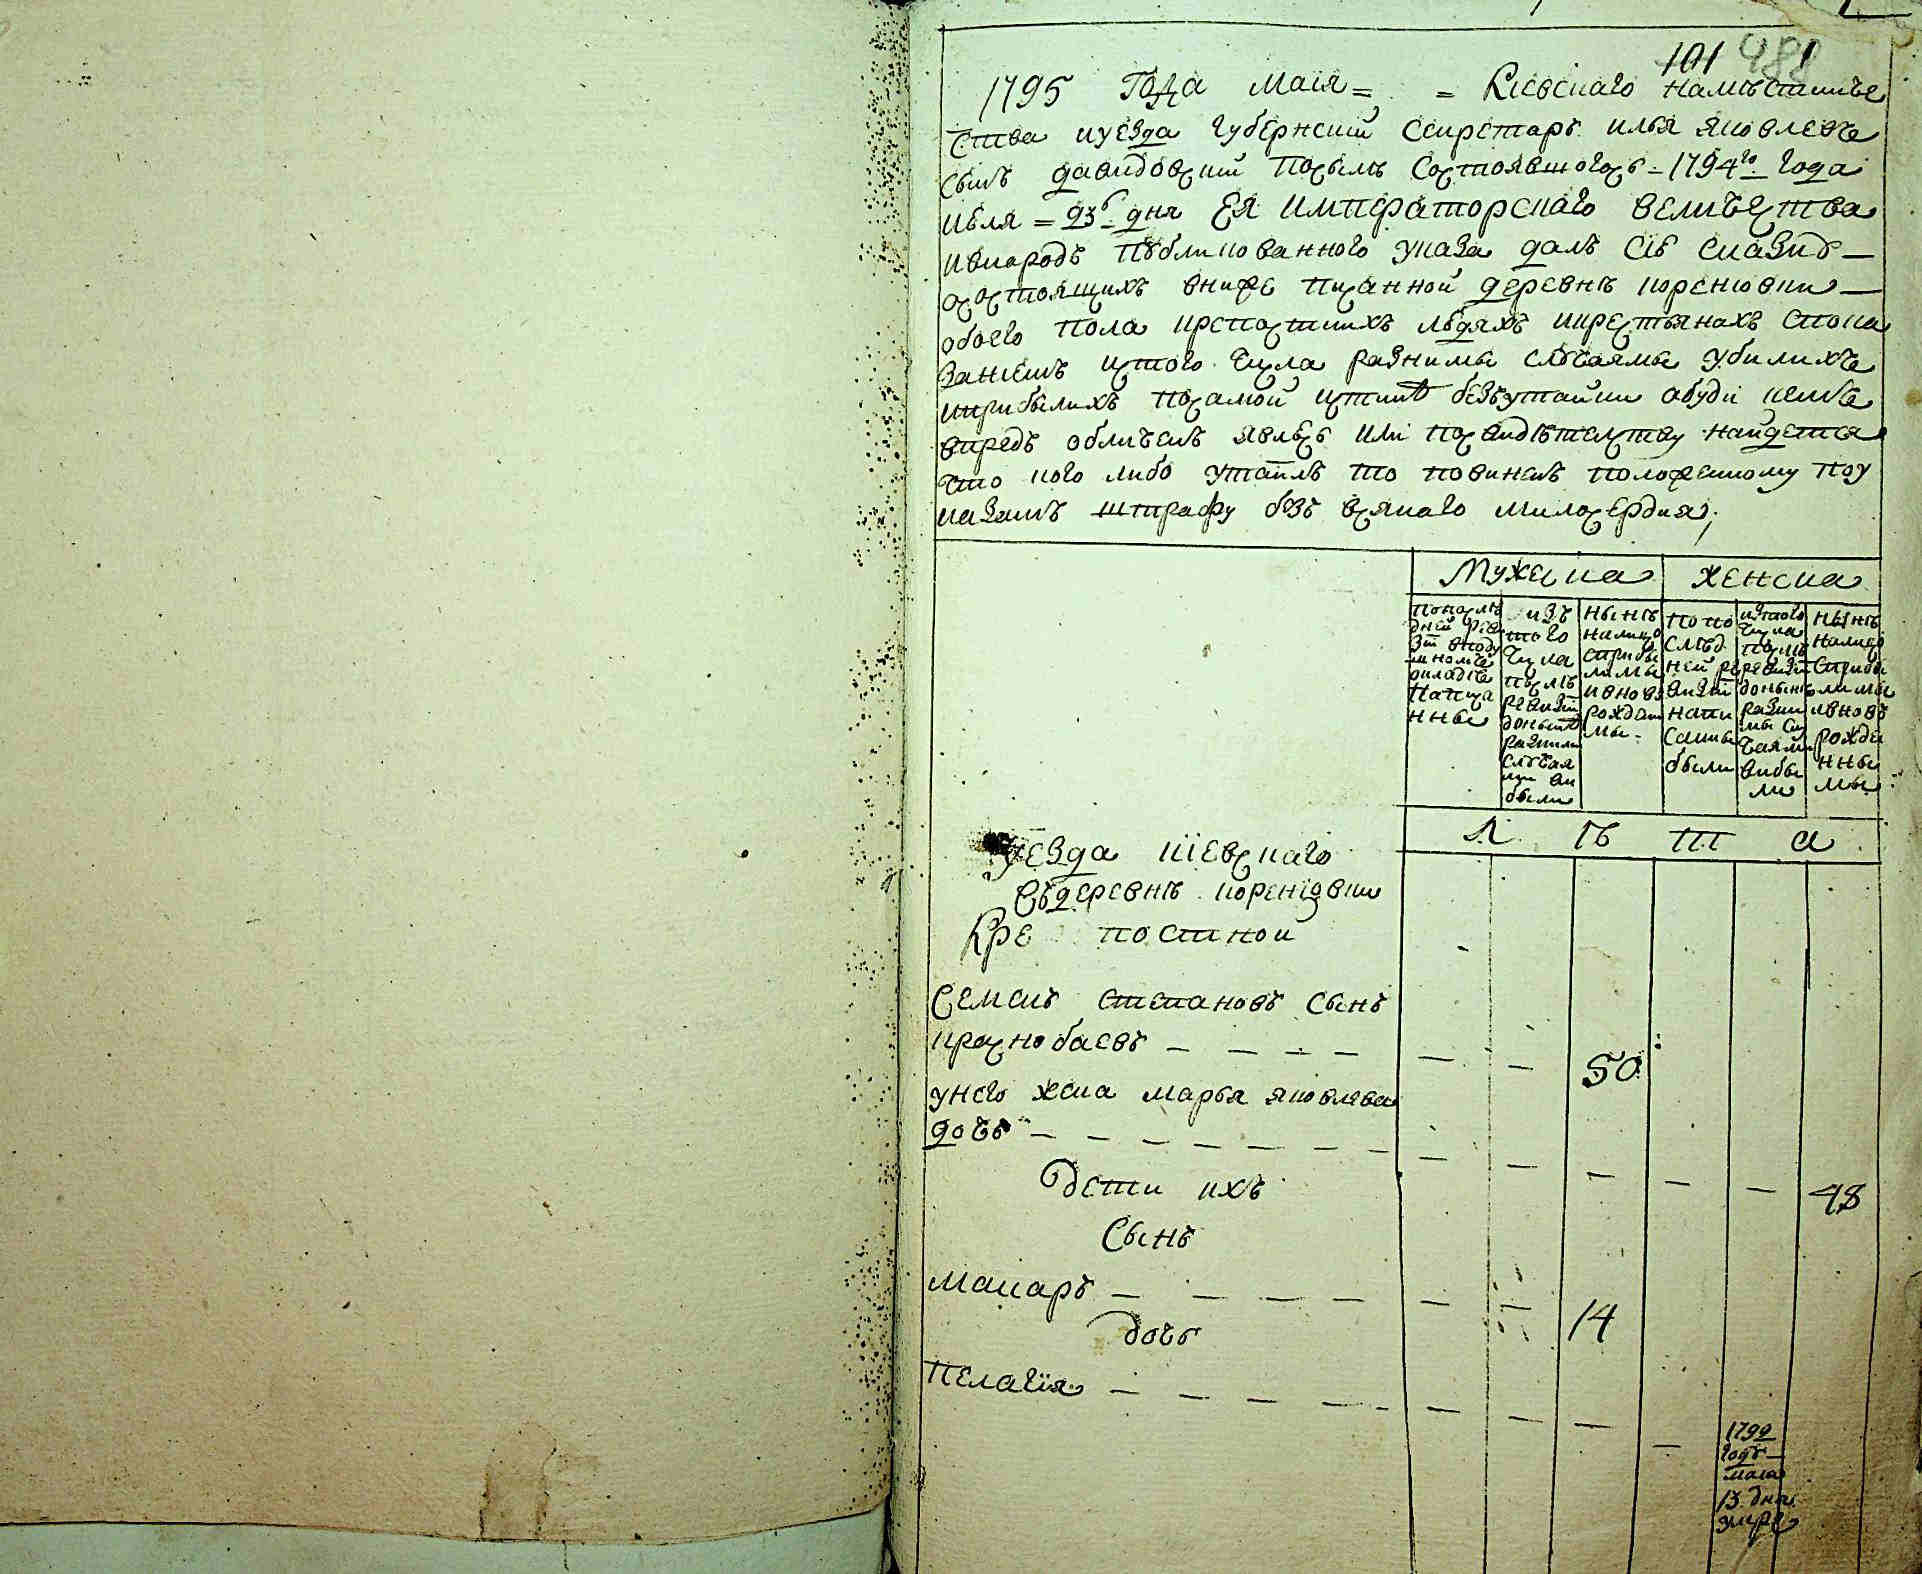 101 488
1795 Года маія = = Кіевского намѣстниче
ства иуезда губернский секретарь илья яковлевъ
сынъ давидовский посылъ состоявшогось = 1794го. года
июля = 23г. дня Ея императорского величества
ивнародъ публикованного указа далъ сію сказку —
осостоящихъ вниже писанной деревнѣ коренювки —
обоего пола крепостнихъ людяхъ икрестьянахъ спока
заниемъ истого числа разними случаями убилихъ
иприбылихъ посамой истинѣ безъутайки абуди кемъ
впредь обличенъ явлюсь или посвидѣтелству найдется
что кого либо утаилъ то повиненъ положенному поу
казамъ штрафу безъ всякаго милосердия;
Мужеска женска
попослѣ
дней реви
зіи вподу
шномъ
окладѣ
написа
нны
изъ
того
числа
послѣ
ревизіи
донынѣ
разними
случая
ми ви
были
нынѣ
налицо
сприбы
лими
ивновь
рожден
ми.
по по
слѣд
ней ре
визіи
напи
саны
были
истого
числа
послѣ
ревизіи
донынѣ
разни
ми слу
чаями
вибы
ли
нынѣ
налицо
сприбы
лими
ивновъ
рожде
нны
ми.
Л ѣ т а
Уезда кіевского
Въдеревнѣ коренювки
Кре постной
Семенъ степановъ сынъ
краснобаевъ — — — — — — 50
унего жена марья яковлева
дочь — — — — — — — — — — — — 48
дети ихъ
Сынъ
макаръ — — — — — — — 14
дочь
пелагия — — — — — — — — —
1792
годъ —
маія
13 дня
умре